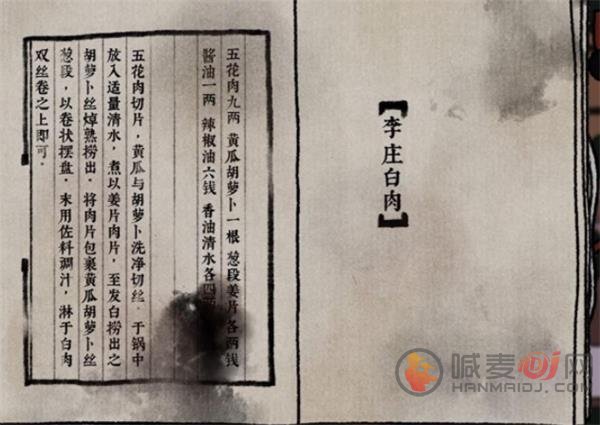 【李庄白肉】
五花肉九两 黄瓜胡萝卜一根 葱段姜片各两钱
酱油一两 辣椒油六钱 香油清水各四
五花肉切片，黄瓜与胡萝卜洗净切丝。于锅中
放入适量清水，煮以姜片肉片，至发白捞出之
胡萝卜丝焯熟捞出。将肉片包裹黄瓜胡萝卜丝
葱段，以卷状摆盘。末用佐料调汁，淋于白肉
双丝卷之上即可。
喊麦DJ网
HANMAIDJ.COM